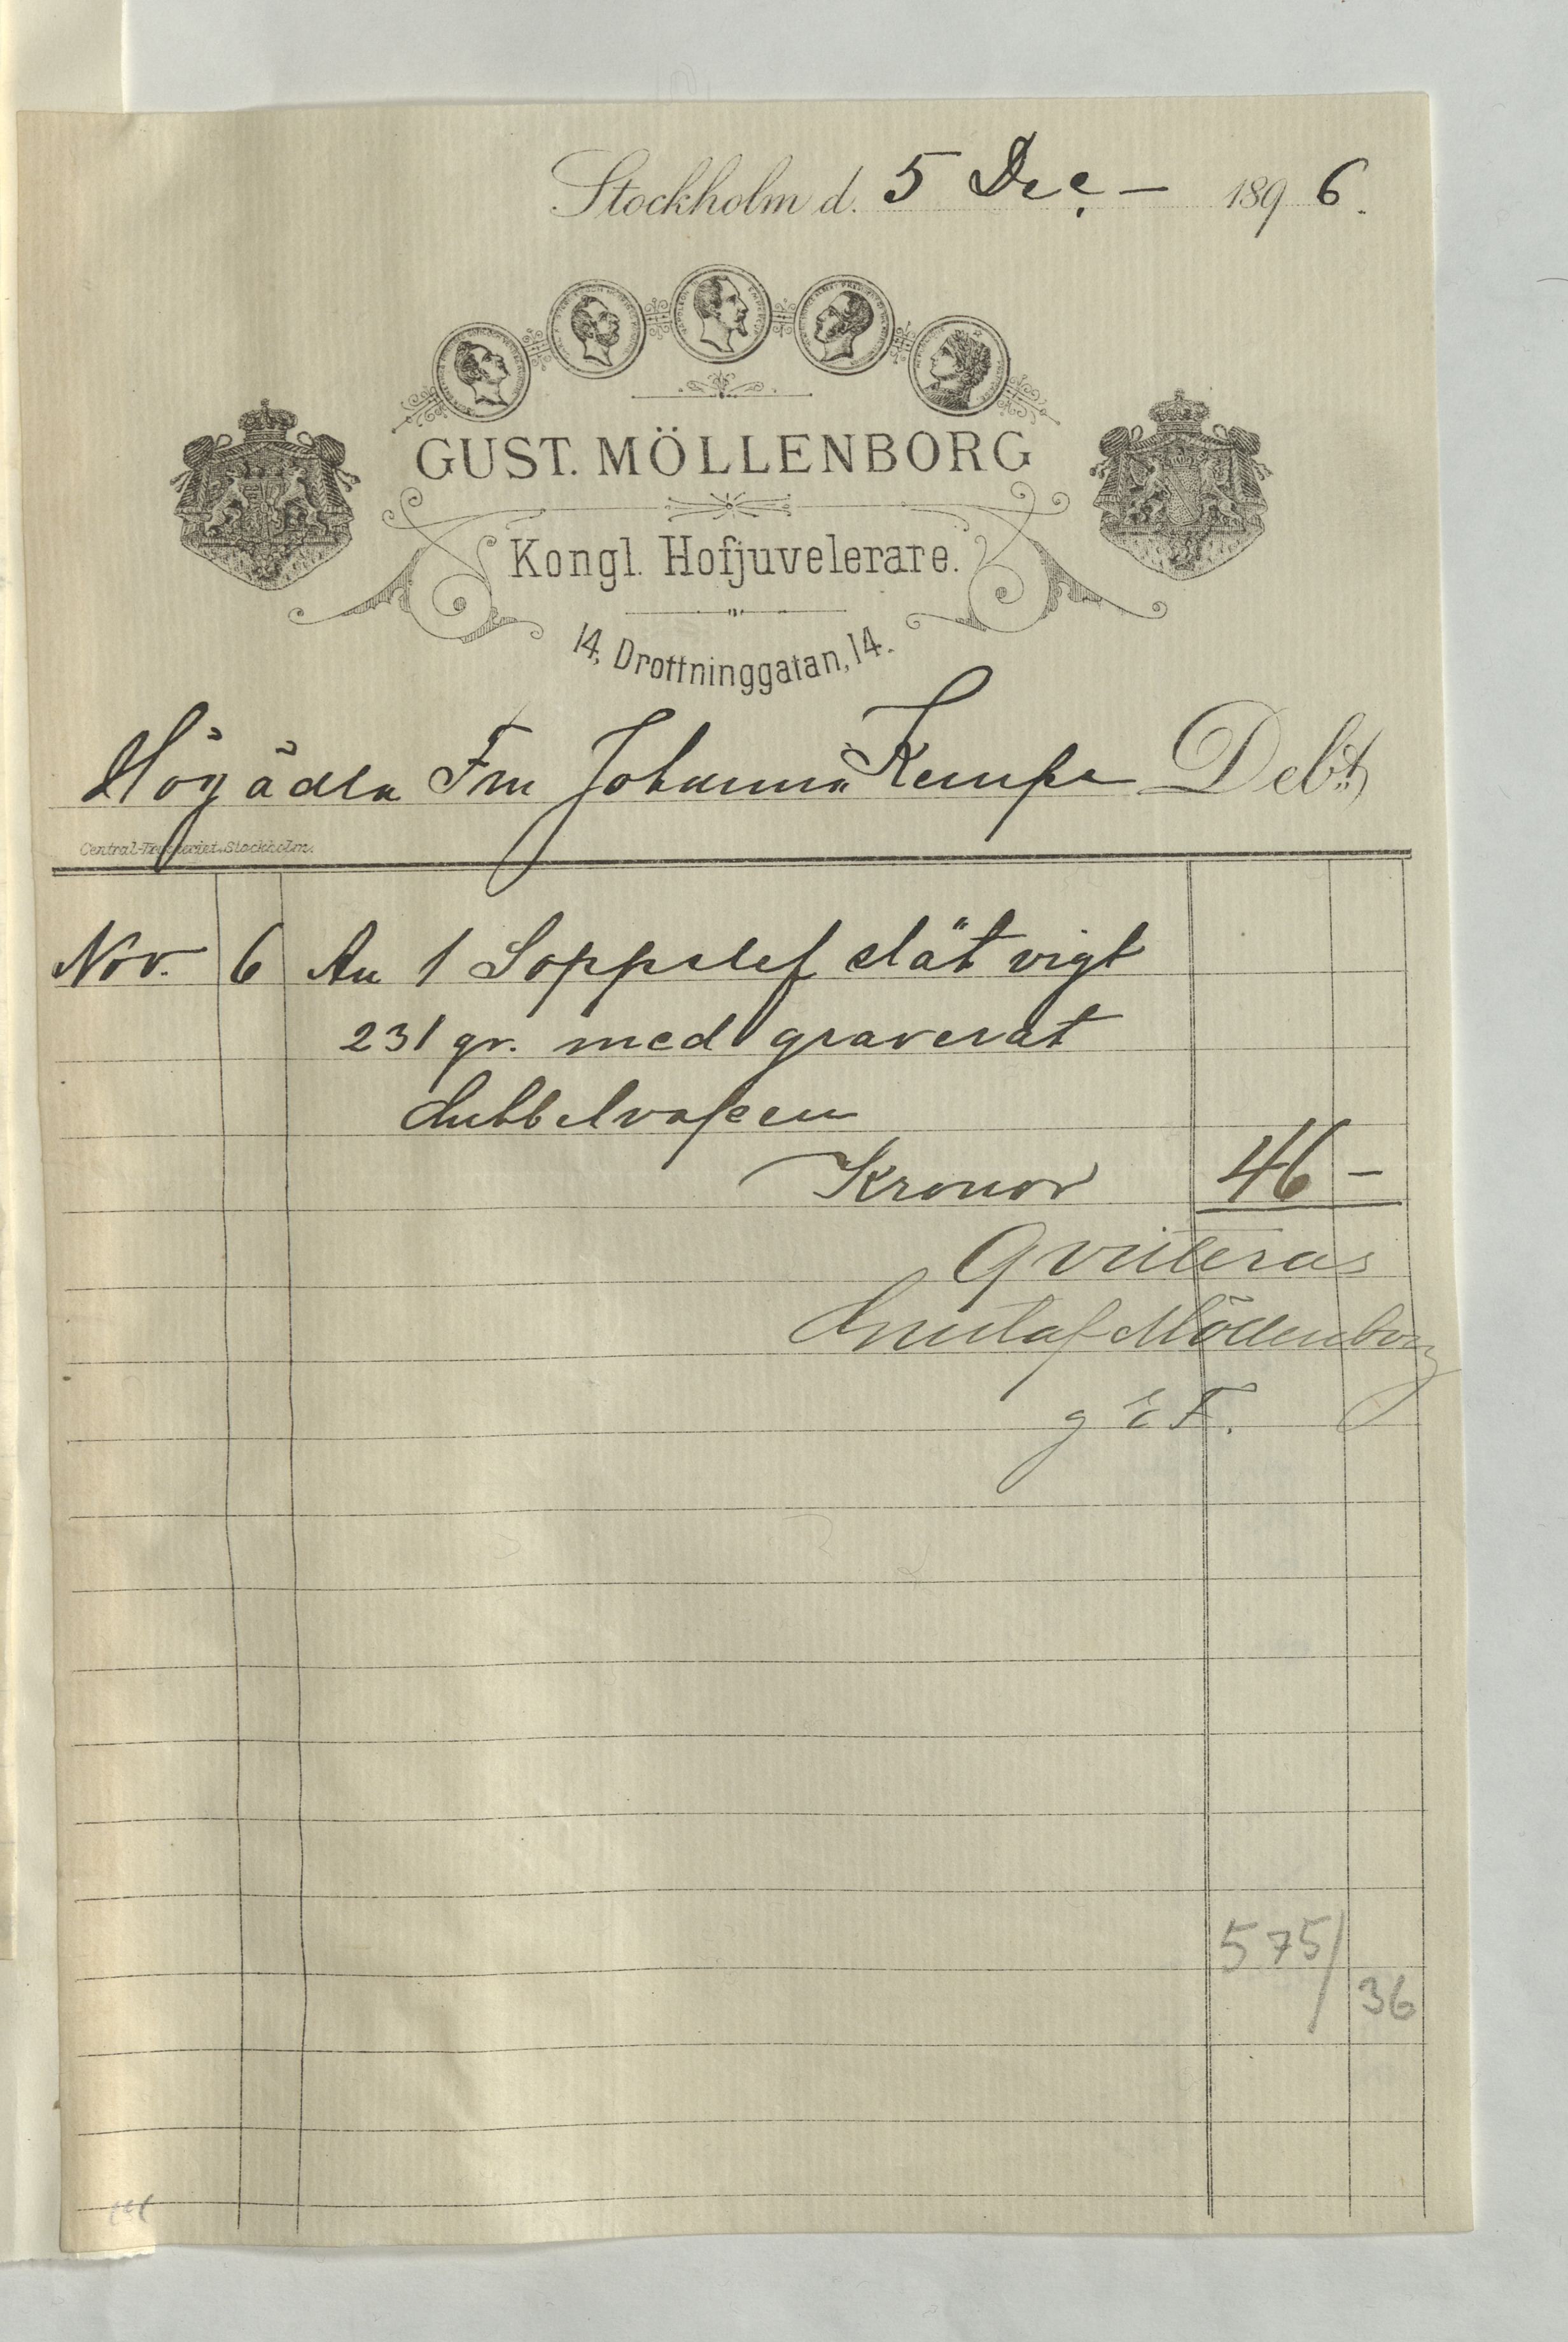 Stockholm d. 5 Dec. – 1896.
GUST. MÖLLENBORG
Kongl. Hofjuvelerare.
14, Drottninggatan, 14.
Högädla Fru Johanna Kempe Debt
Central-Tryckeriet, Stockholm.
Nov. 6 An 1 Soppslef slät vigt
231 gr. med graverat
dubbelvapen
Kronor 46 –
Qvitteras
Gustaf Möllenborg
g E F.
575/
36